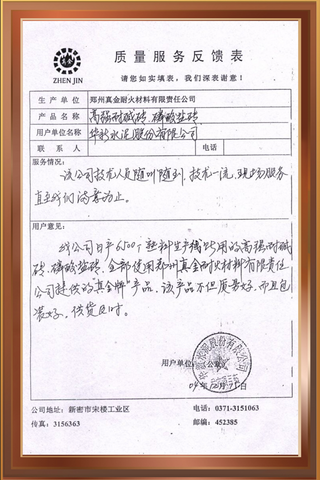 ZHEN JIN
质量服务反馈表
请您如实填表，我们深表谢意！
生产单位 郑州真金耐火材料有限责任公司
产品名称 高强耐碱砖、磷酸盐砖
用户单位名称 华新水泥股份有限公司
联系人 电话
服务情况：
该公司技术人员随叫随到，技术一流，现场服务
直至我们满意为止。
用户意见：
我公司日产6500t熟料生产线所用的高强耐碱
砖、磷酸盐砖，全部使用郑州真金耐火材料有限责任
公司提供的"真金牌"产品，该产品不但质量好，而且包
装好，供货及时。
用户单位： （公章）
公司地址：新密市宋楼工业区 电话：0371-3151063
传真：3156363 邮编：452385